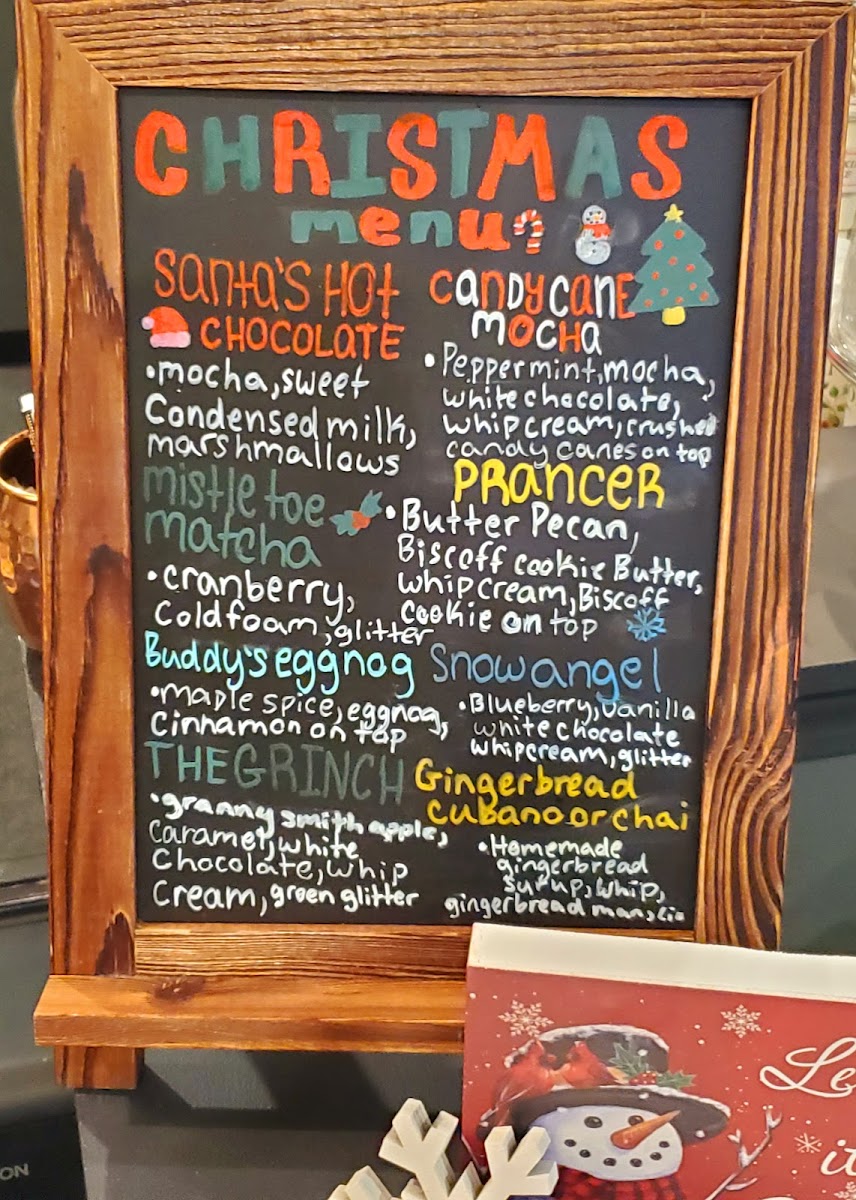 CHRISTMAS
menu
Santa's Hot
CHOCOLATE
•mocha, sweet
Condensed milk,
marshmallows
mistletoe
matcha
•cranberry,
Coldfoam, glitter
Buddy's eggnog
•maple spice, eggnog,
Cinnamon on top
THE GRINCH
•granny smith apple,
Caramel, white
Chocolate, whip
Cream, green glitter
CANDY CANE
MOCHA
•Peppermint, mocha,
white chocolate,
whip cream, crushed
candy canes on top
PRANCER
•Butter Pecan,
Biscoff cookie Butter,
whip cream, Biscoff
cookie on top
Snow angel
•Blueberry, vanilla
white chocolate
whipcream, glitter
Gingerbread
cubano or chai
•Homemade
gingerbread
syrup, whip,
gingerbread man,
Le
it
ON